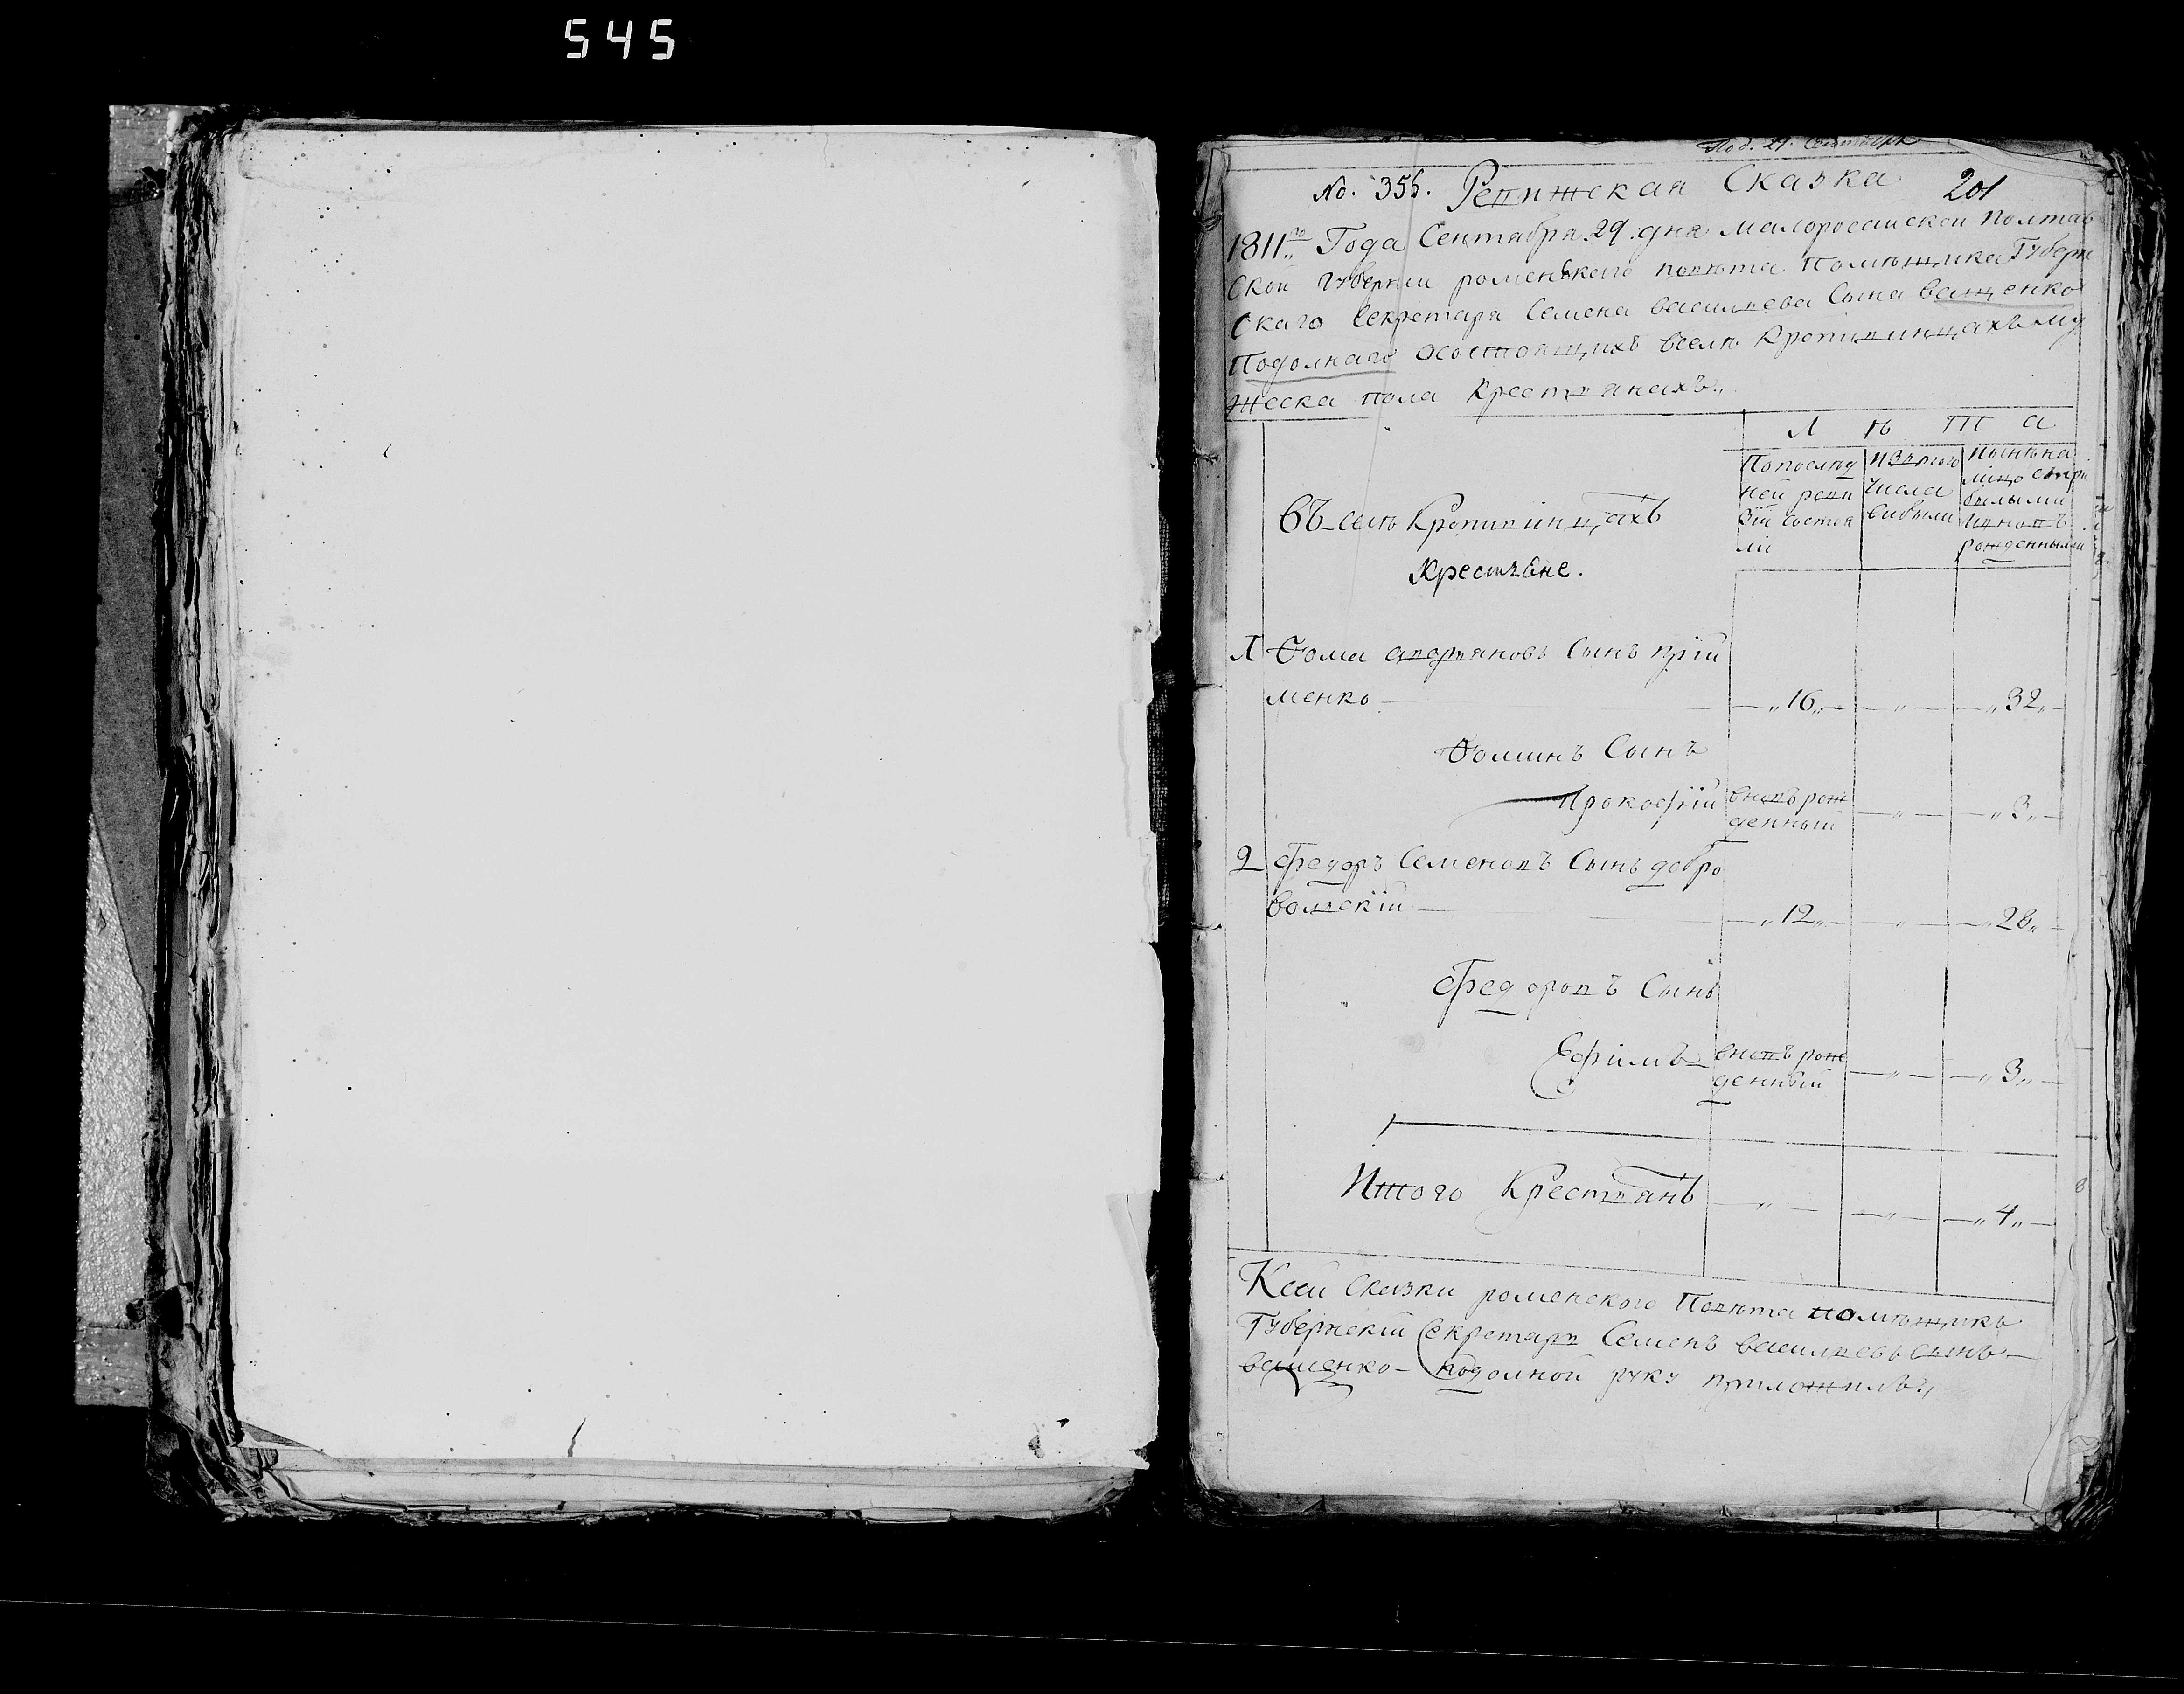 545
Под. 29. Сентября
No. 355. Ревижская Сказка 201
1811го Года Сентября 29 дня малоросаиской Полтав
ской губернии роменского повѣта Помѣщика Губерн
скаго Секретаря Семена васильева Сына ващенко
Подолнаго осостоящихъ вселѣ Кропивинцахъ му
жеска пола крестьянахъ
Л ѣ т а
Въ селѣ Кропивинцахъ
Крестьяне.
Попослѣд
ней реви
зіи состоя
ли
изтого
числа
выбыли
Нынѣна
лицо съпри
былыми
ивновъ
рожденными
1 Фома андрияновъ Сынъ Кріи
менко 16 " 32
Фоминъ Сынъ
Прокофій вновъ рож
денный " 3
2 Федоръ Семеновъ Сынъ добро
волский 12 " 28
Федоровъ Сынъ
Ефимъ вновъ рож
денный " 3
Итого Крестьянъ " " 4
Ксей Сказки роменского Повѣта помѣщикъ
Губернскій Секретарь Семенъ васильевъ сынъ
ващенко-подолной руку приложилъ